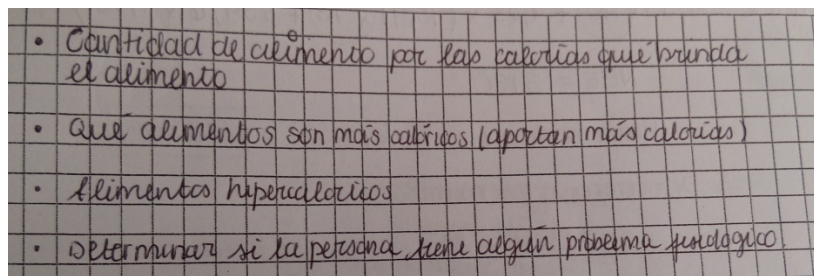 • Cantidad de alimento por las calorías que brinda
el alimento
• Qué alimentos son más calóricos (aportan más calorías)
• Alimentos hipercalóricos
• Determinar si la persona tiene algún problema fisiológico.